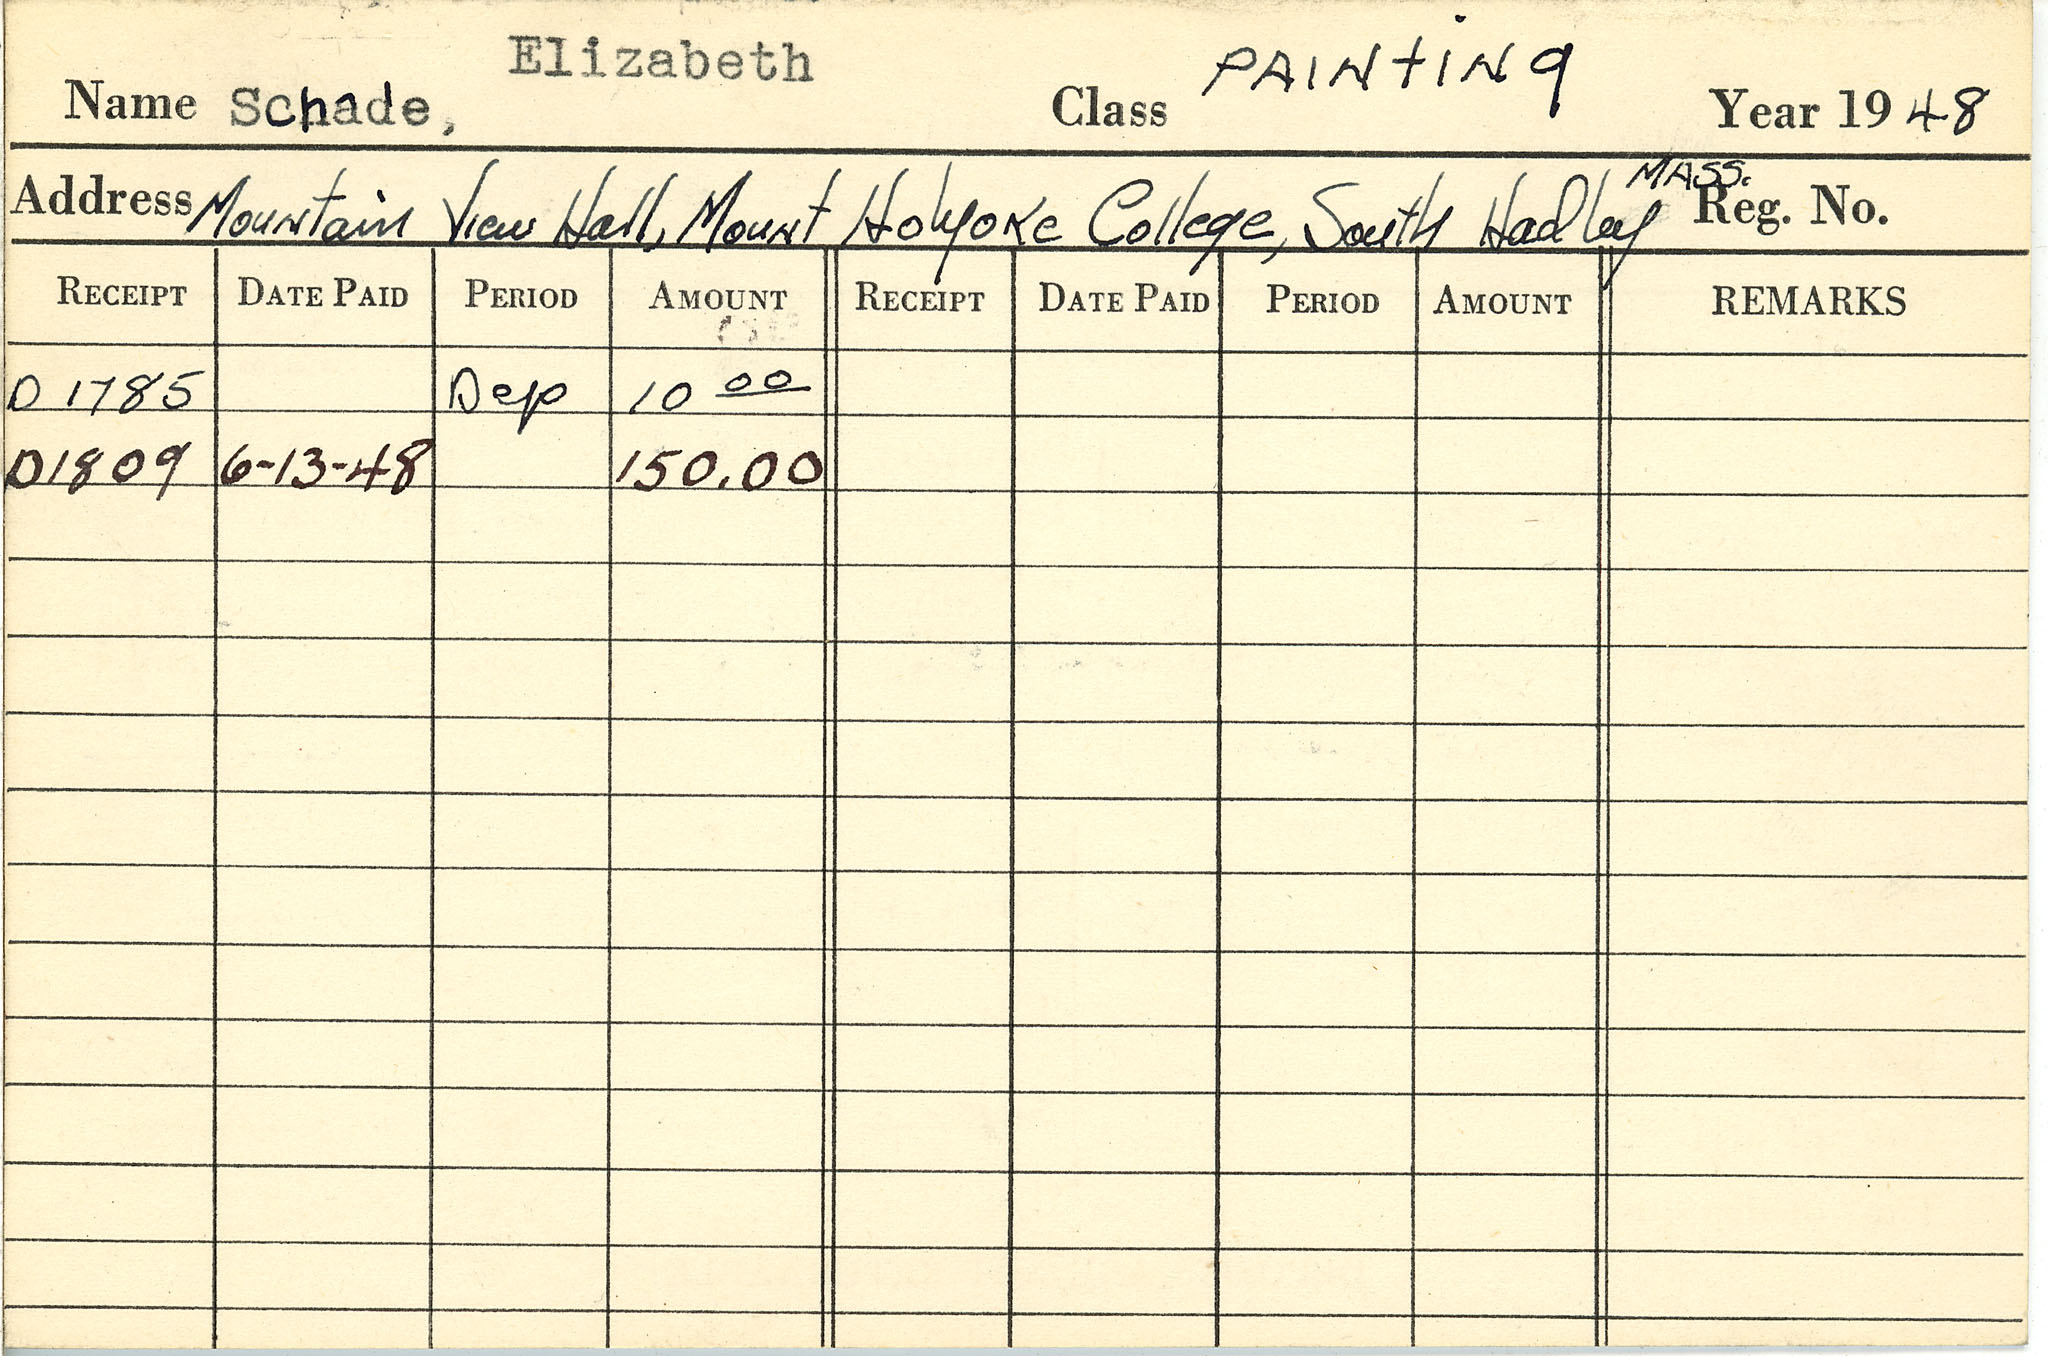 Elizabeth
Name Schade, Class PAINTING Year 1948
MASS.
Address Mountain View Hall, Mount Holyoke College, South Hadley Reg. No.
RECEIPT DATE PAID PERIOD AMOUNT RECEIPT DATE PAID PERIOD AMOUNT REMARKS
D 1785 Dep 10 00
D1809 6-13-48 150.00